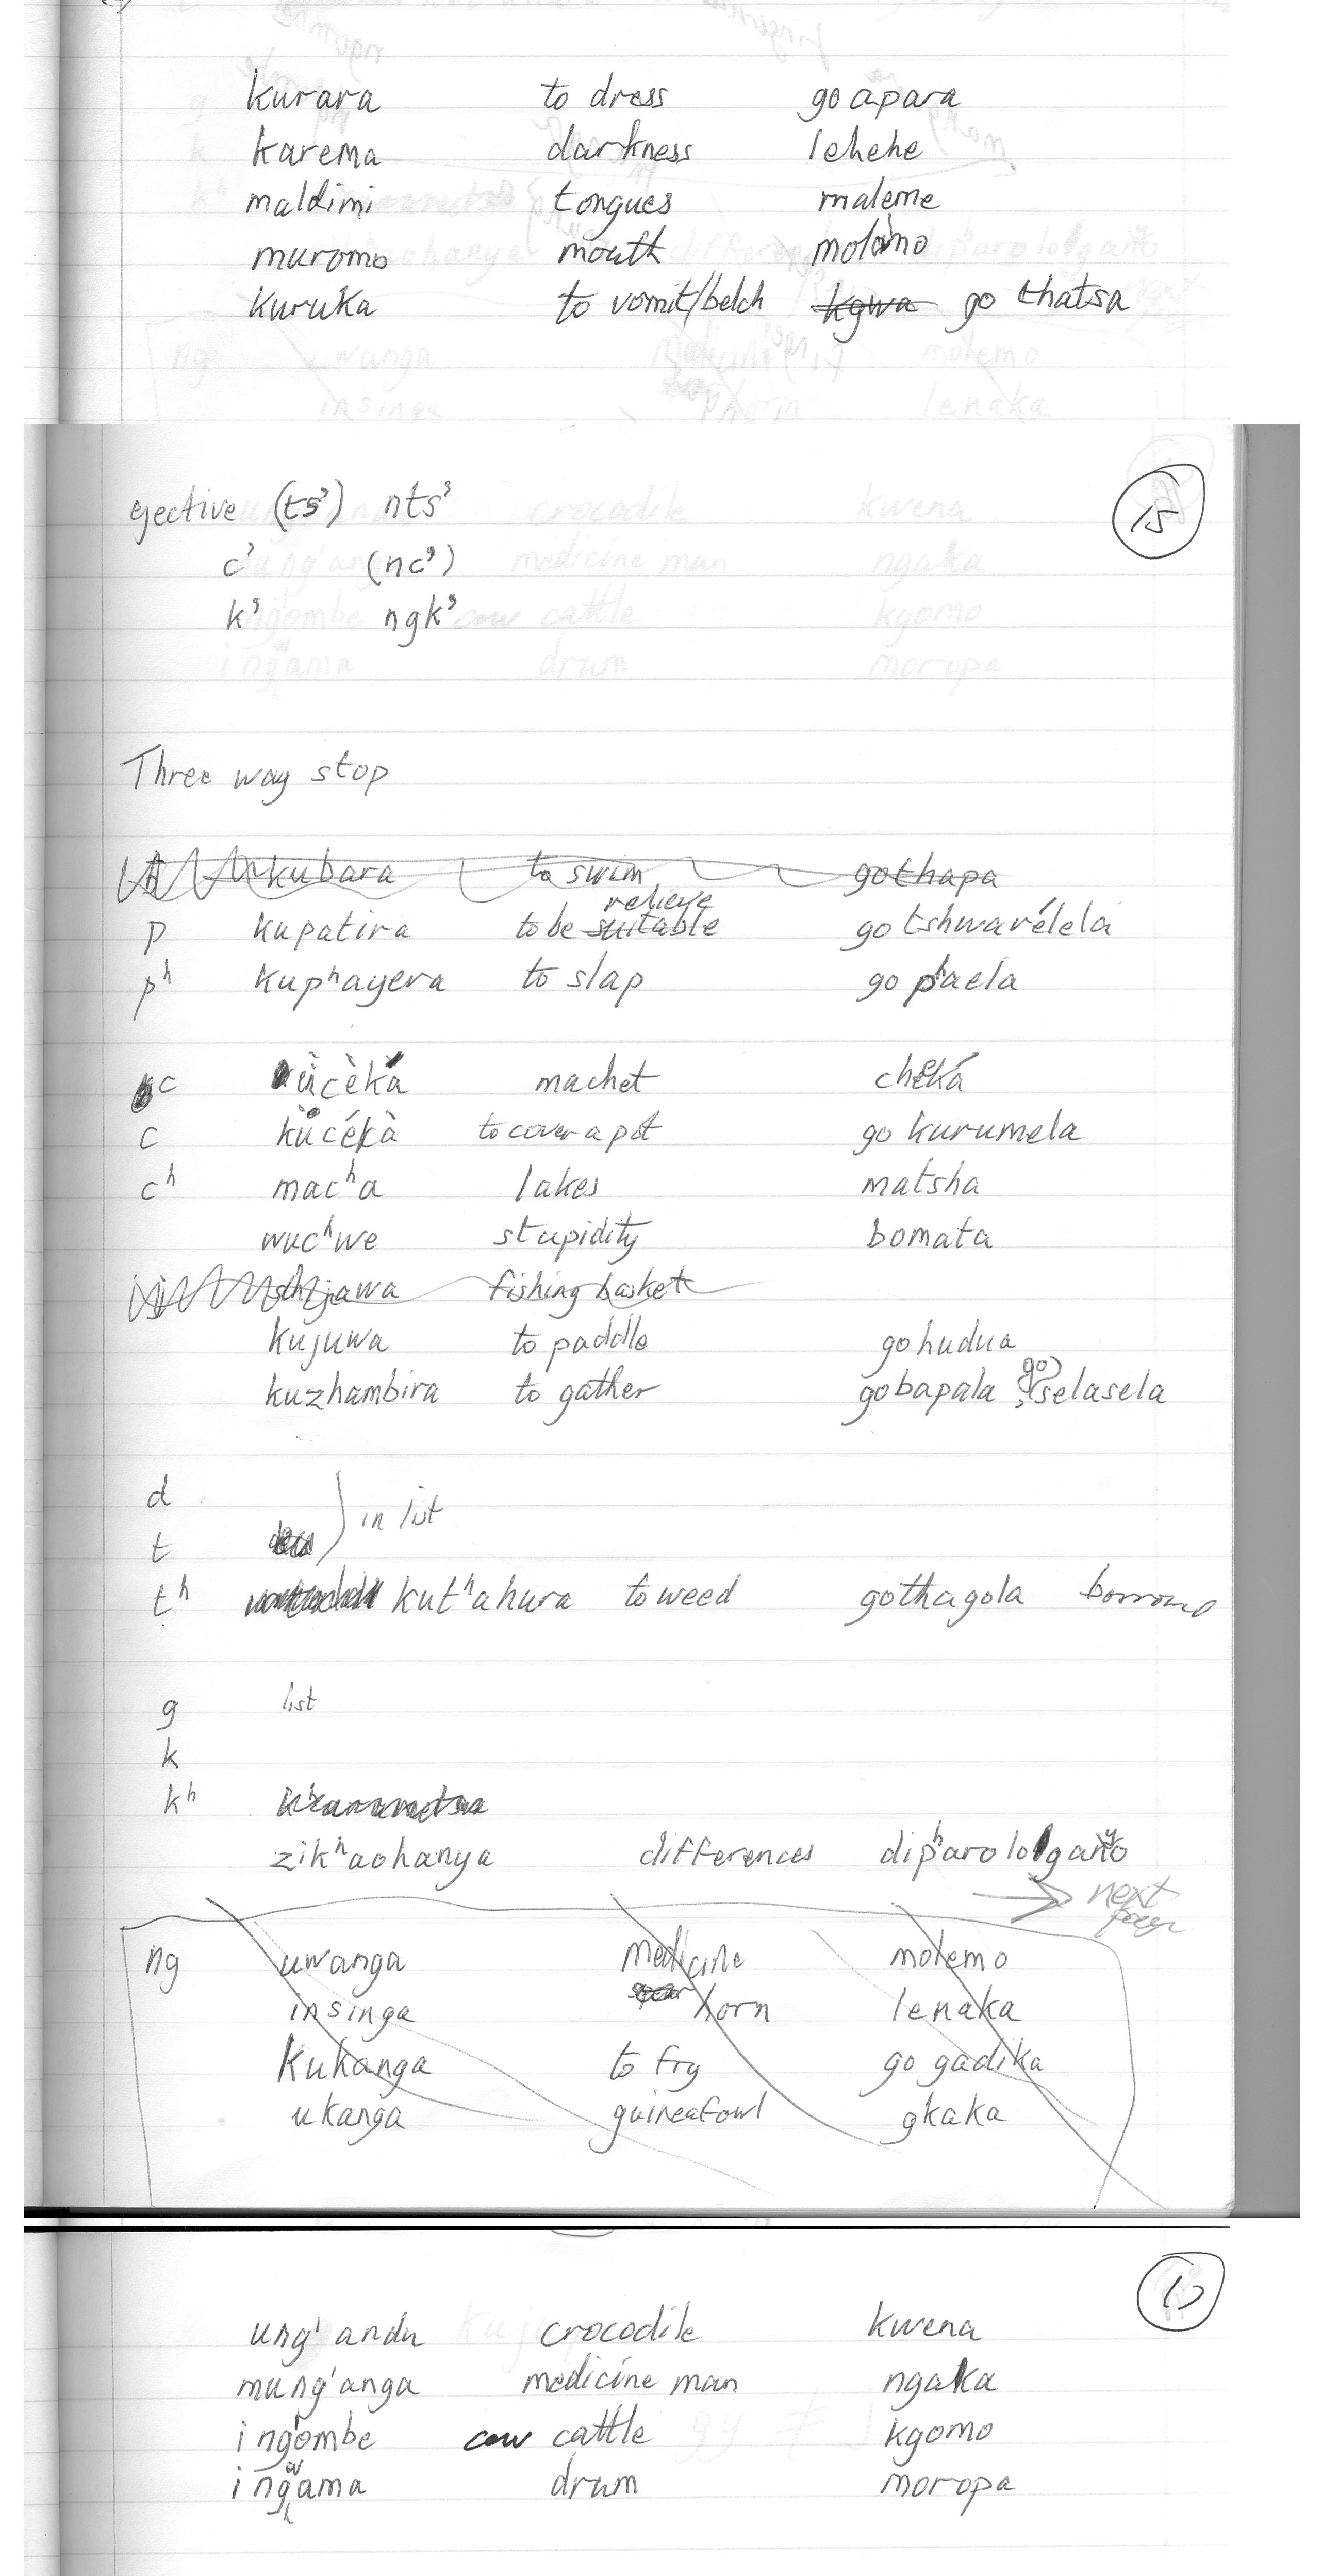 kurara to dress go apara
karema darkness lehehe
maldimi tongues maleme
muromo mouth molomo
kuruka to vomit/belch kgwa go thatsa
ejective (ts') nts'
15
c' (nc')
k' ngk'
Three way stop
kubara to swim go thapa
relieve
p kupatira to be suitable go tshwarélela
pʰ kupʰayera to slap go pʰaela
c ùcèká machet chèká
c kùcékà to cover a pot go kurumela
cʰ macʰa lakes matsha
wucʰwe stupidity bomata
shijawa fishing basket
kujuwa to paddle go hudua
kuzhambira to gather go bapala, (go) selasela
d
in list
t
tʰ kutʰahura to weed go thagola borrowed
g list
k
kʰ
zikʰaohanya differences dipʰarologanyo
→ next page
ng uwanga medicine molemo
insinga horn lenaka
kukanga to fry go gadika
ukanga guineafowl gkaka
ung'andu crocodile kwena
mung'anga medicine man ngaka
ing'ombe cow cattle kgomo
ing'oma drum moropa